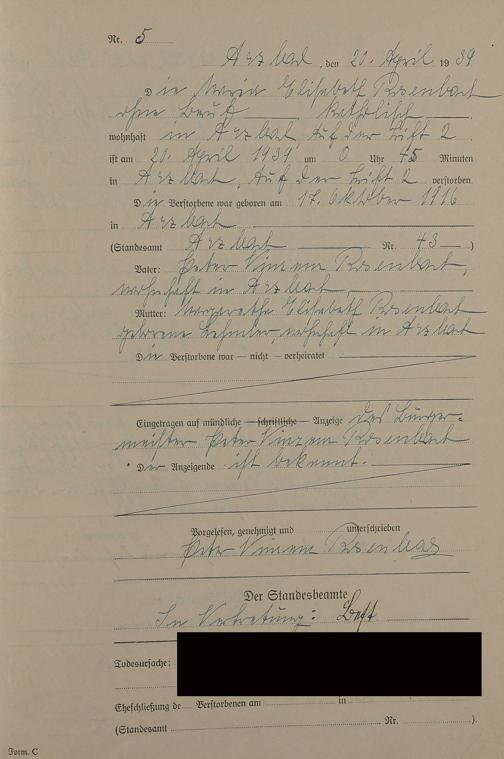 Nr. 5
Arzbach, den 20. April 1939
Die Maria Elisabeth Rosenbach
ohne Beruf, katholisch,
wohnhaft in Arzbach, Auf der Trift 2
ist am 20. April 1939 um 0 Uhr 45 Minuten
in Arzbach, Auf der Trift 2 verstorben.
Die Verstorbene war geboren am 17. Oktober 1916
in Arzbach
(Standesamt Arzbach Nr. 43)
Vater: Peter Vinzenz Rosenbach,
wohnhaft in Arzbach,
Mutter: Margarethe Elisabeth Rosenbach
geborene wohnhaft in Arzbach
Die Verstorbene war — nicht — verheiratet
Eingetragen auf mündliche — schriftliche — Anzeige des Bürger-
meister Peter Vinzenz Rosenbach
Der Anzeigende ist bekannt.
Vorgelesen, genehmigt und unterschrieben
Peter Vinzenz Rosenbach
Der Standesbeamte
In Vertretung:
Todesursache:
Eheschließung de Verstorbenen am in
(Standesamt Nr. ).
Form. C